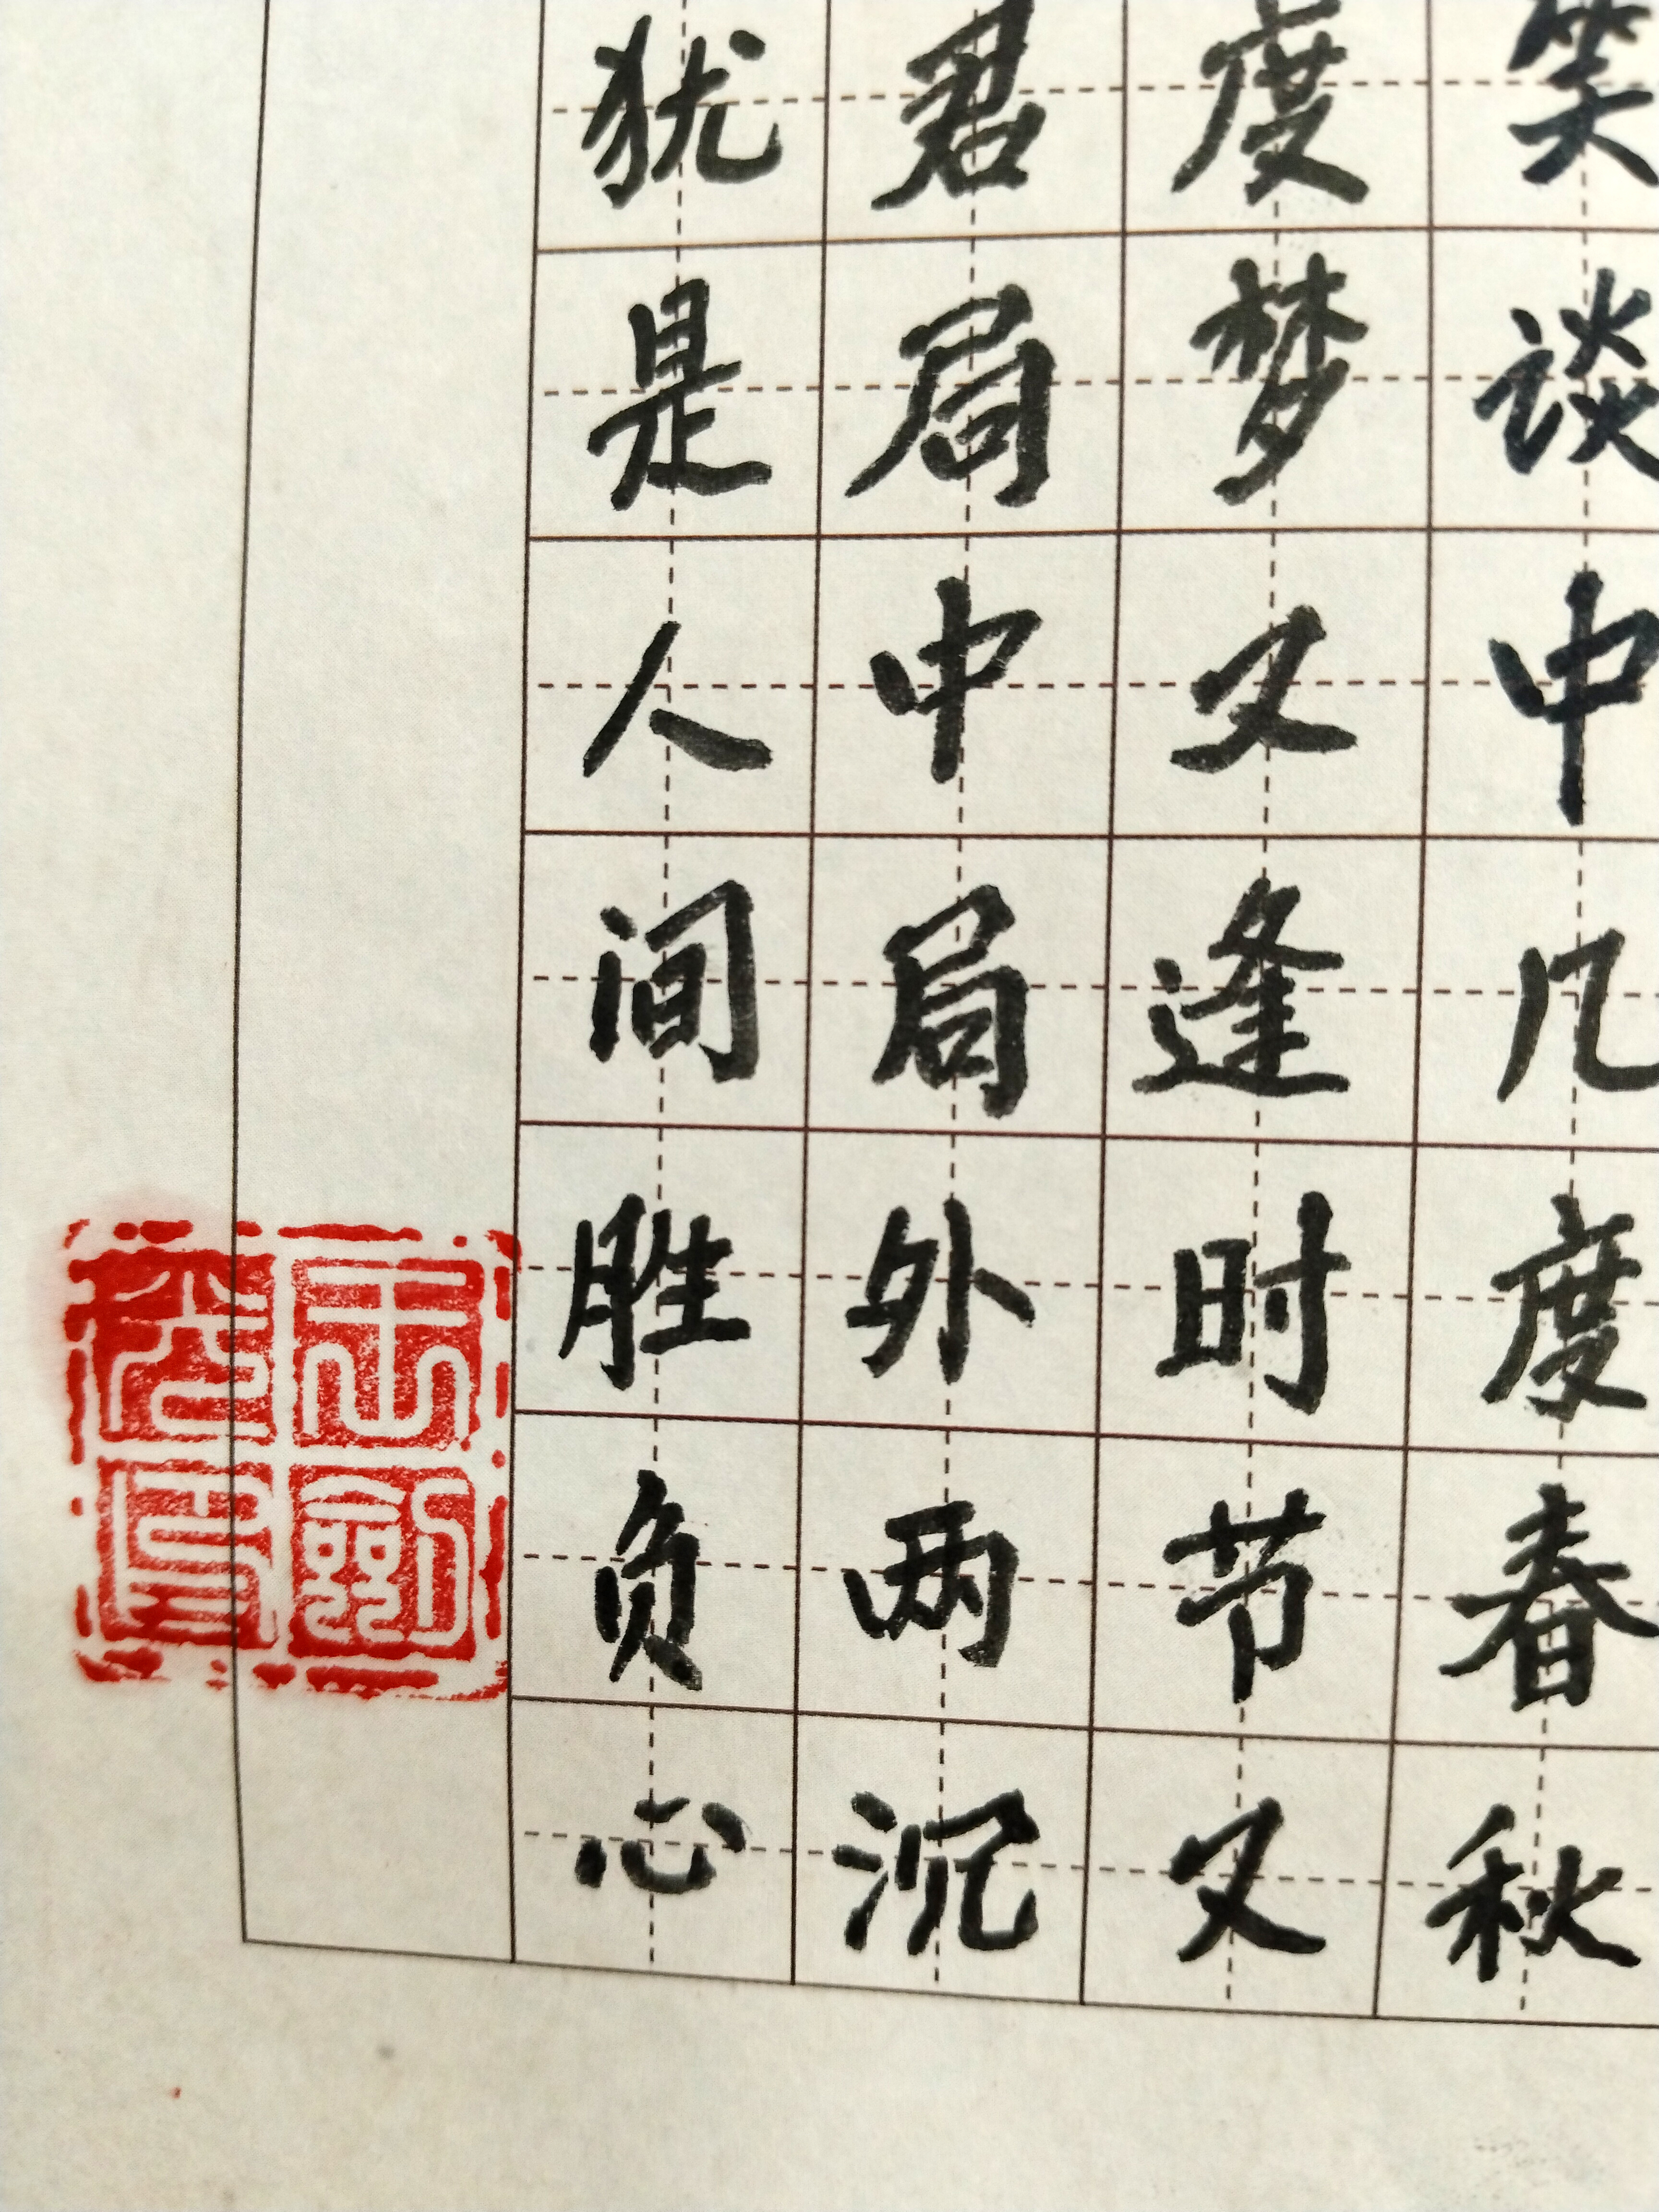 笑谈中几度春秋
度梦又逢时节又
君局中局外两沉
犹是人间胜负心